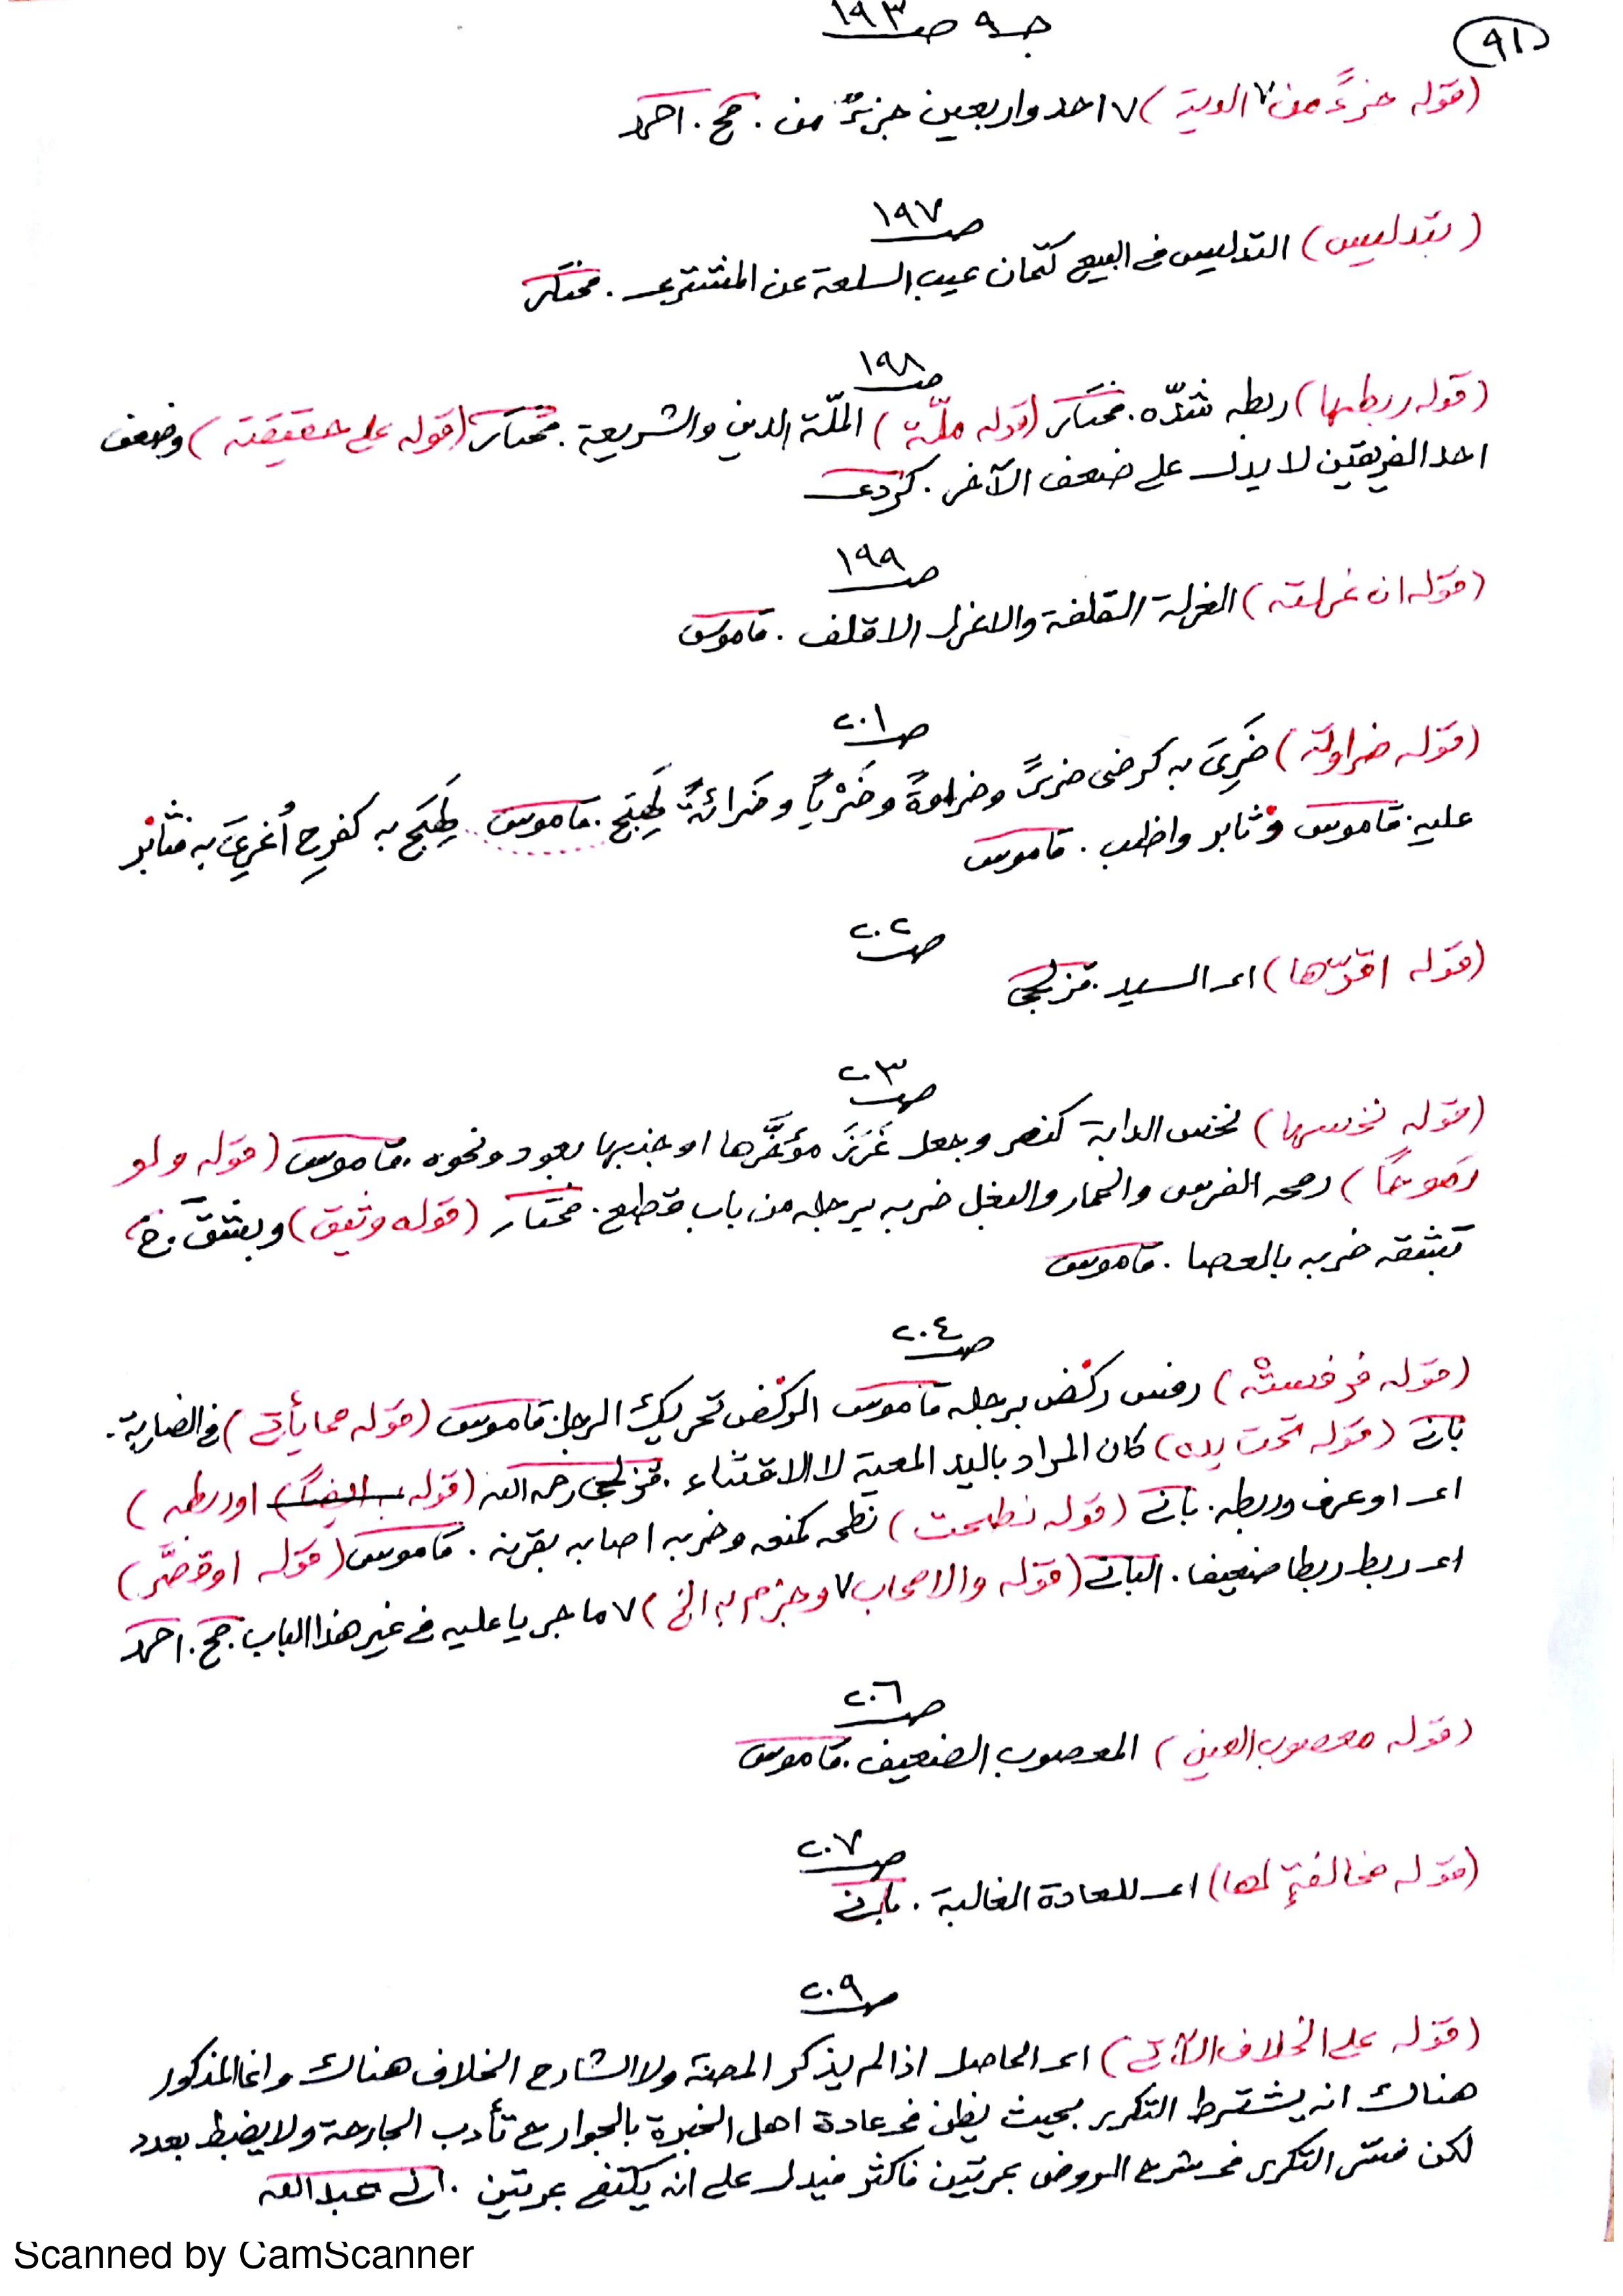 (٩١)
جـ ٩ صـ ١٩٣
(قوله جزءً من ٧ الدية) ٧ احد واربعين جزءً من . صح . احمد
صـ ١٩٧
(بتدليس) التدليس في البيع كتمان عيب السلعة عن المشترى . مختار
صـ ١٩٨
(قوله ربطها) ربطه شدّه . مختار (قوله ملّة) الملّة الدين والشريعة . مختار (قوله على حقيقته) وضعف
احد الفريقين لا يدل على ضعف الآخر . كردى
صـ ١٩٩
(قوله ان غرلته) الغرلة القلفة والاغرل الاقلف . قاموس
صـ ٢٠١
(قوله ضراوة) ضَرِىَ به كرضى ضرىً وضراوةً وضَرْياً وضرائةً لَهِجَ . قاموس لَهِجَ به كفرح أُغرِىَ به فثابر
عليه . قاموس وثابر واظب . قاموس
صـ ٢٠٢
(قوله اقرّها) اى السيد . قزلجى
صـ ٢٠٣
(قوله نخسها) نخس الدابة كنصر وجعل غَرَزَ مؤخَّرها او جنبها بعود ونحوه . قاموس (قوله ولو
رموحاً) رمحه الفرس والحمار والبغل ضربه برجله من باب قطع . مختار (قوله وثيق)
ضربه بالعصا . قاموس
صـ ٢٠٤
(قوله فرفسته) رفس ركض برجله قاموس الركض تحريك الرجل . قاموس (قوله مما يأتى) فى الضارية .
بانى (قوله تحت يده) كان المراد باليد المعية لا الاقتناء . قزلجى رحمه الله (قوله او ربطه)
اى او عرف وربطه . بانى (قوله نطحت) نطحه كمنعه وضربه اصابه بقرنه . قاموس (قوله او قصّر)
اى ربط ربطا ضعيفا . البانى (قوله والاصحاب ٧ وجزم به الخ) ٧ ما جريا عليه فى غير هذا الباب . صح . احمد
صـ ٢٠٦
(قوله معصوب العين) المعصوب الضعيف . قاموس
صـ ٢٠٧
(قوله مخالفةٍ لها) اى للعادة الغالبة . بانى
صـ ٢٠٩
(قوله على الخلاف الآتى) اى الحاصل اذ لم يذكر المصنف ولا الشارح الخلاف هناك وانما المذكور
هناك انه يشترط التكرر بحيث يظن فى عادة اهل الخبرة بالجوارح تأدب الجارحة ولا يضبط بعدد
لكن فسّر التكرر فى شرح الروض بمرتين فاكثر فيدل على انه يكتفى بمرتين . عبدالله
Scanned by CamScanner